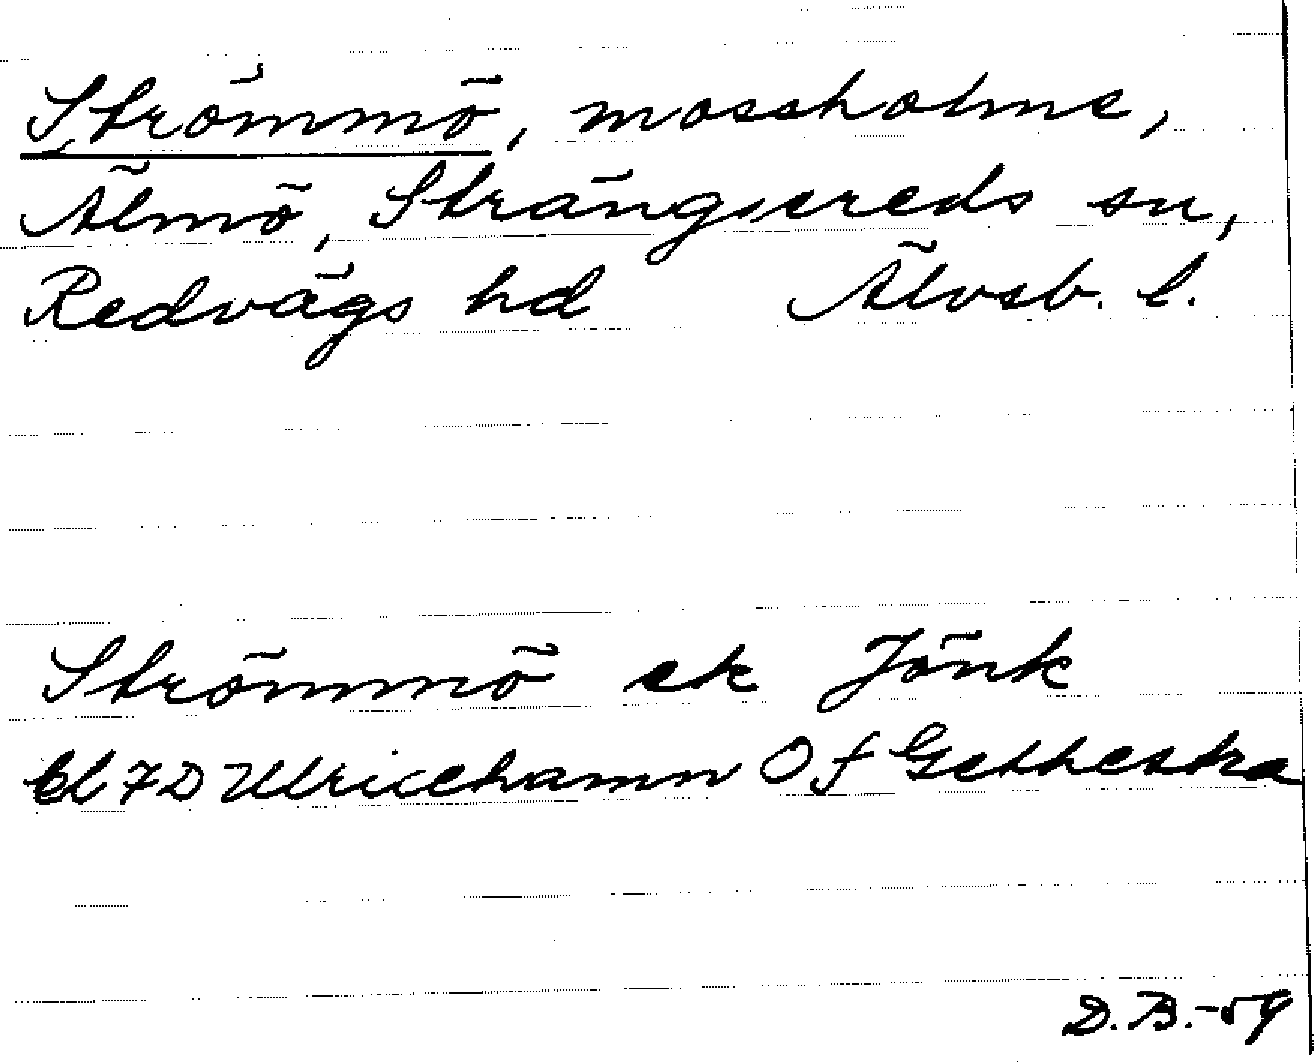 Strömmö, mossholme,
Älmö, Strängsereds sn,
Redvägs hd Älvsb. l.
Strömmö ek Jönk
bl 7D Ulricehamn Of
D. B.-59